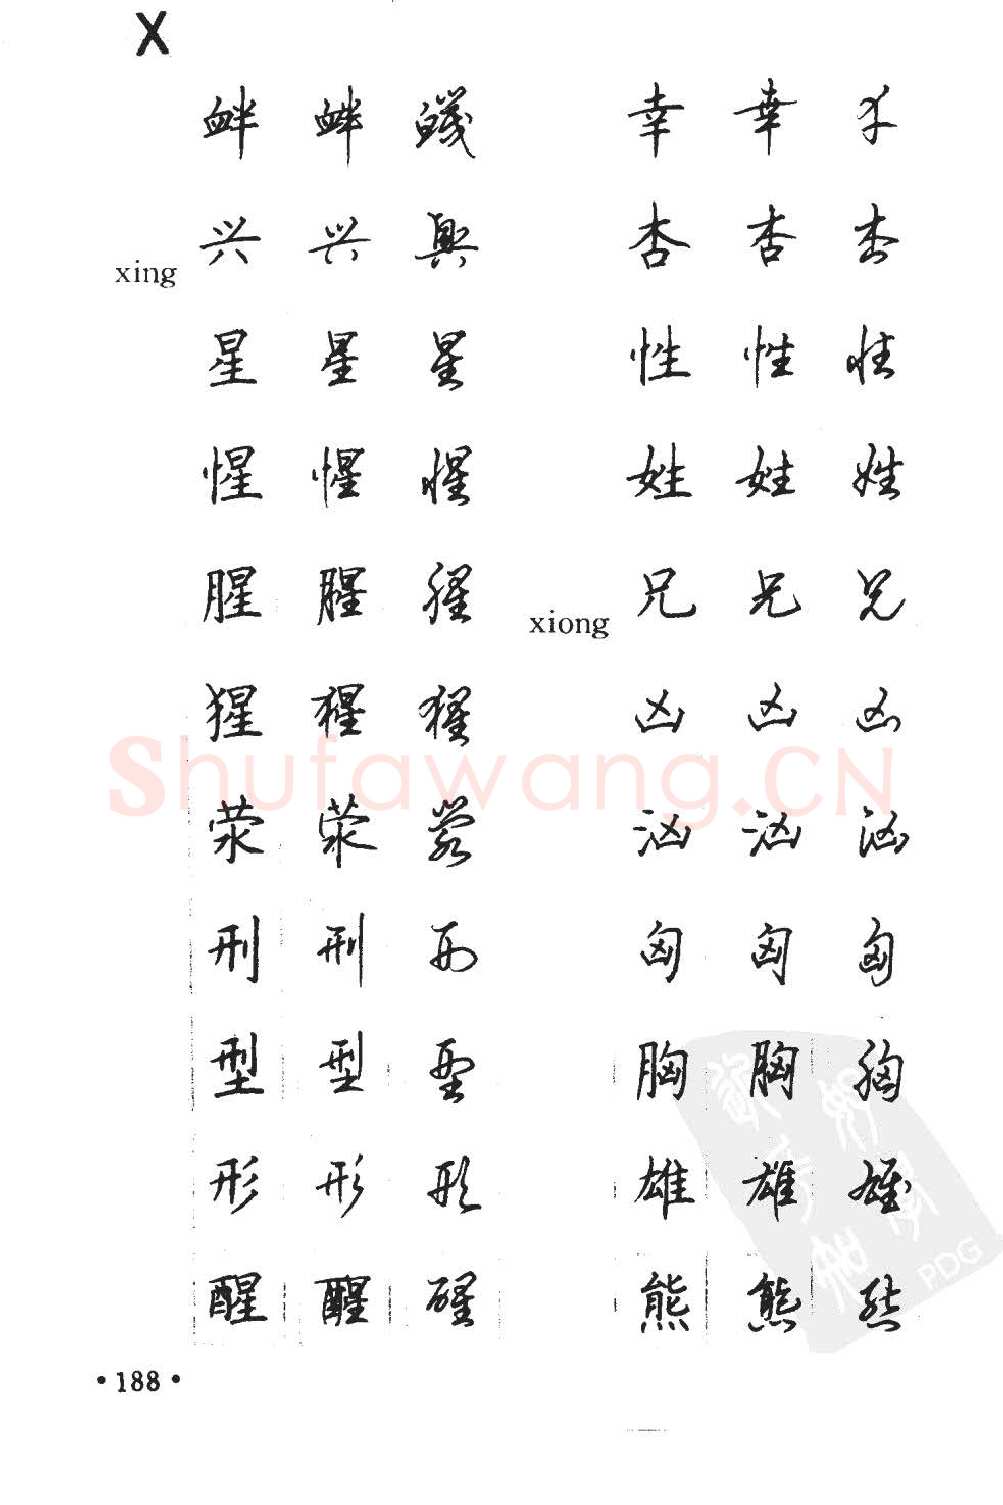 X
衅 衅
xing
兴 兴 興
星 星 星
惺 惺 惺
腥 腥 腥
猩 猩 猩
荥 荥 荥
刑 刑 刑
型 型 型
形 形 形
醒 醒 醒
幸 幸 幸
杏 杏 杏
性 性 性
姓 姓 姓
xiong
兄 兄 兄
凶 凶 凶
汹 汹 汹
匈 匈 匈
胸 胸 胸
雄 雄 雄
熊 熊 熊
Shufawang.CN
PDG
·188·